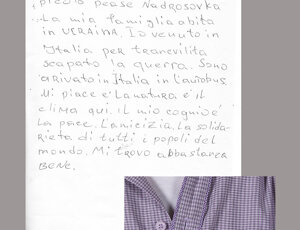 piccolo paese Nadrosovka
La mia famiglia abita
in UCRAINA. Io venuto in
Italia per tranvilita
scapato la querra. Sono
arivato in Italia in l'autobus.
Mi piace è la natura è il
clima qui. Il mio cognide
La pace. L'amicizia. La solida-
rieta di tutti i popoli del
mondo. Mi trovo abbastanza
BENE.